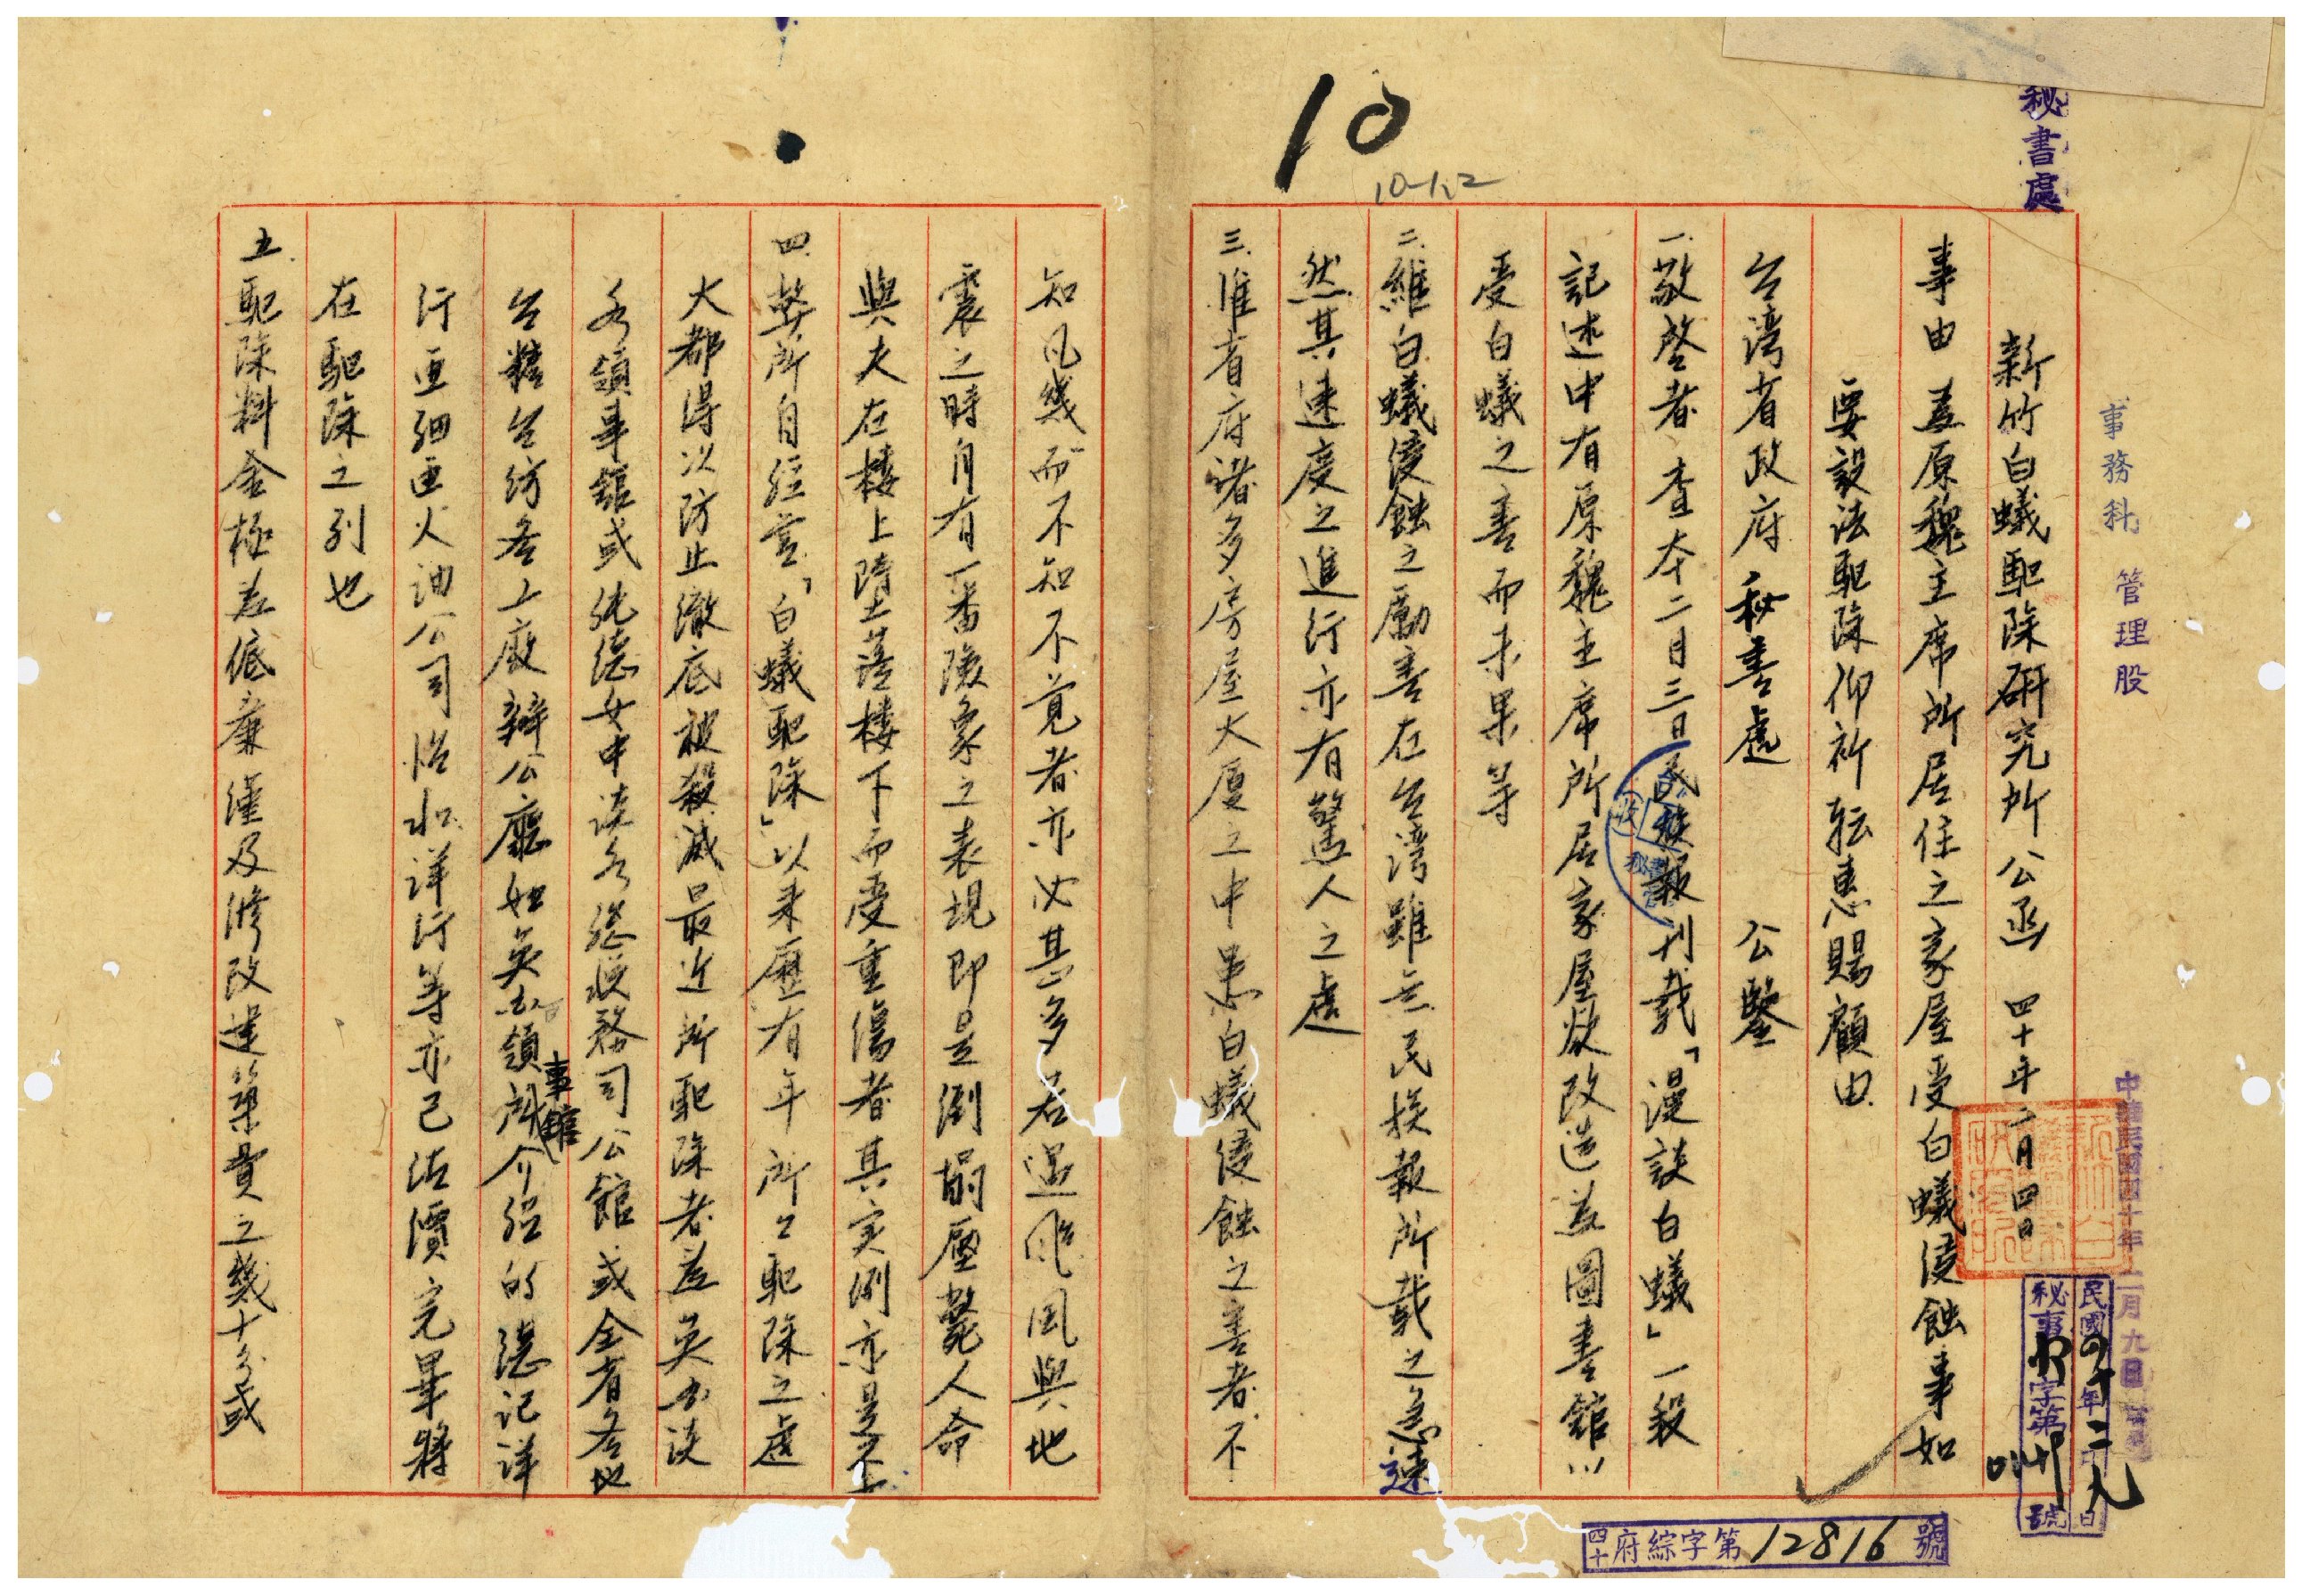 秘書處
事務科 管理股
10
10-1,2
新竹白蟻駆除研究所公函 四十年二月四日
事由 為原魏主席所居住之家屋受白蟻侵蝕事如
要設法駆除仰祈転惠賜顧由
台湾省政府秘書處 公鑒
一、敬啓者查本二月三日民族報刊載「漫談白蟻」一段
記述中有原魏主席所居家屋欲改造為圖書館以
受白蟻之害而未果等
二、維白蟻侵蝕之勵害在台湾雖無民族報所載之急速
然其速度之進行亦有驚人之處
三、惟省府諸多房屋大厦之中患白蟻侵蝕之害者不
知凡幾而不知不覚者亦必甚多若遇颱風與地
震之時自有一番險象之表現即是倒塌壓斃人命
與夫在樓上墮落樓下而受重傷者其実例亦是不上
四、弊所自経営「白蟻駆除」以来歷有年所公駆除之處
大都得以防止徹底被殺滅最近所駆除者為英国淡
水領事館或純德女中淡水総税務司公館或全省各地
台糖台紡各工廠辦公廳如英国領事館介紹的德記洋
行亜細亜火油公司怡和洋行等亦已估價完畢將
在駆除之列也
五、駆除料金極為低廉僅及修改建築費之幾十分或
中華民國四十年二月九日
民國四十年二月九日
秘事 字第 號
四十府綜字第12816號